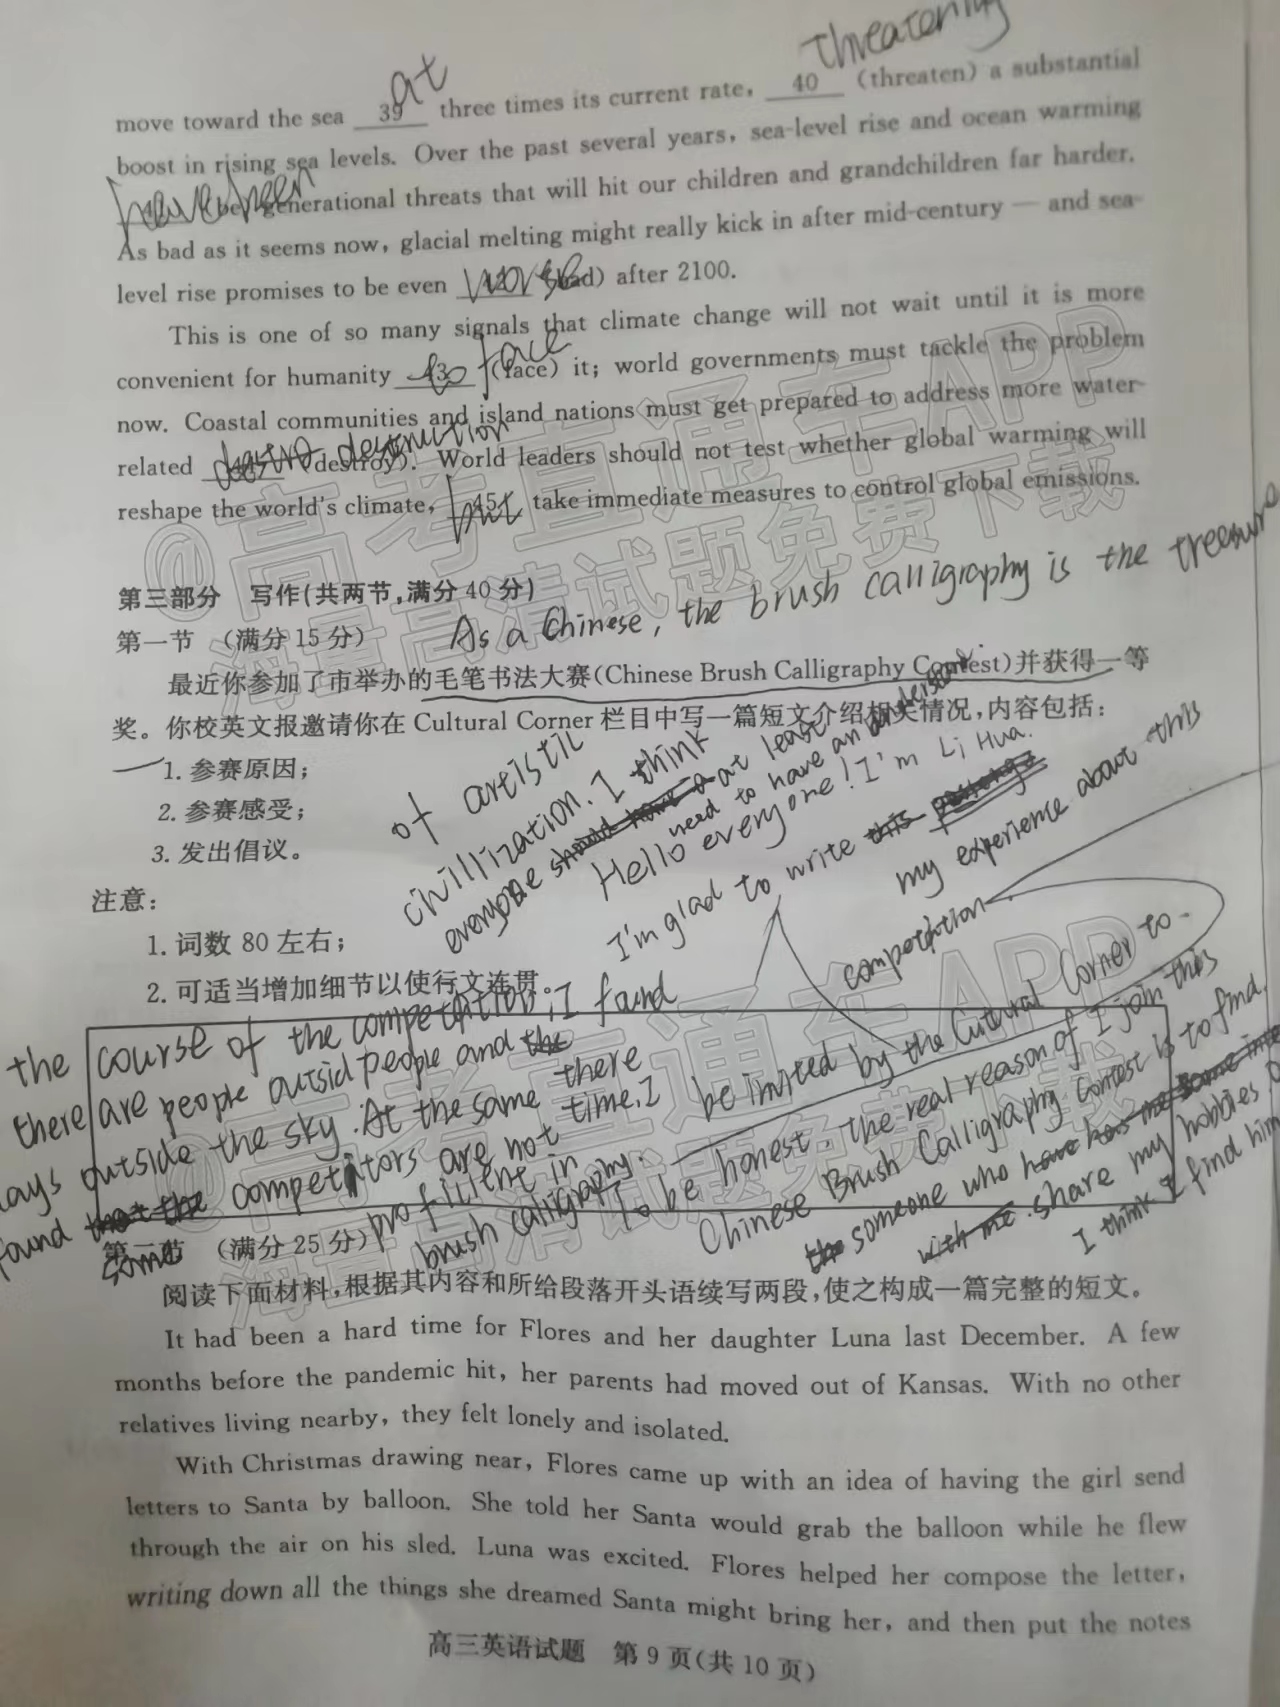 at
threatening
move toward the sea 39 three times its current rate, 40 (threaten) a substantial
boost in rising sea levels. Over the past several years, sea-level rise and ocean warming
have been generational threats that will hit our children and grandchildren far harder.
As bad as it seems now, glacial melting might really kick in after mid-century — and sea-
level rise promises to be even worse after 2100.
This is one of so many signals that climate change will not wait until it is more
convenient for humanity 43 to face (face) it; world governments must tackle the problem
now. Coastal communities and island nations must get prepared to address more water-
related destruction (destroy). World leaders should not test whether global warming will
reshape the world's climate, but 45 take immediate measures to control global emissions.
第三部分 写作(共两节,满分40分)
As a Chinese, the brush calligraphy is the treasure
第一节 (满分15分)
最近你参加了市举办的毛笔书法大赛(Chinese Brush Calligraphy Contest)并获得一等
奖。你校英文报邀请你在 Cultural Corner 栏目中写一篇短文介绍相关情况,内容包括:
1. 参赛原因;
2. 参赛感受;
3. 发出倡议。
of artistic
chillization. I think
everyone at least
need to have an
Hello everyone! I'm Li Hua.
I'm glad to write
my experience about this
competition
注意:
1. 词数 80 左右;
2. 可适当增加细节以使行文连贯。
be invited by the Cultural Corner to
the course of the competation, I found
there are people outsid people and there
outside the sky. At the same time, I
found competitors are not
profilient in
brush calligraphy.
To be honest, the real reason of I join this
Chinese Brush Calligraphy Contest is to find
someone who share my hobbies
I think I find him
第二节 (满分25分)
阅读下面材料,根据其内容和所给段落开头语续写两段,使之构成一篇完整的短文。
It had been a hard time for Flores and her daughter Luna last December. A few
months before the pandemic hit, her parents had moved out of Kansas. With no other
relatives living nearby, they felt lonely and isolated.
With Christmas drawing near, Flores came up with an idea of having the girl send
letters to Santa by balloon. She told her Santa would grab the balloon while he flew
through the air on his sled. Luna was excited. Flores helped her compose the letter,
writing down all the things she dreamed Santa might bring her, and then put the notes
高三英语试题 第9页(共10页)